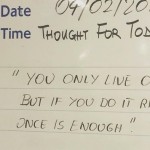 Date 09/02/20
Time THOUGHT FOR TOD
"YOU ONLY LIVE O
BUT IF YOU DO IT R
ONCE IS ENOUGH".